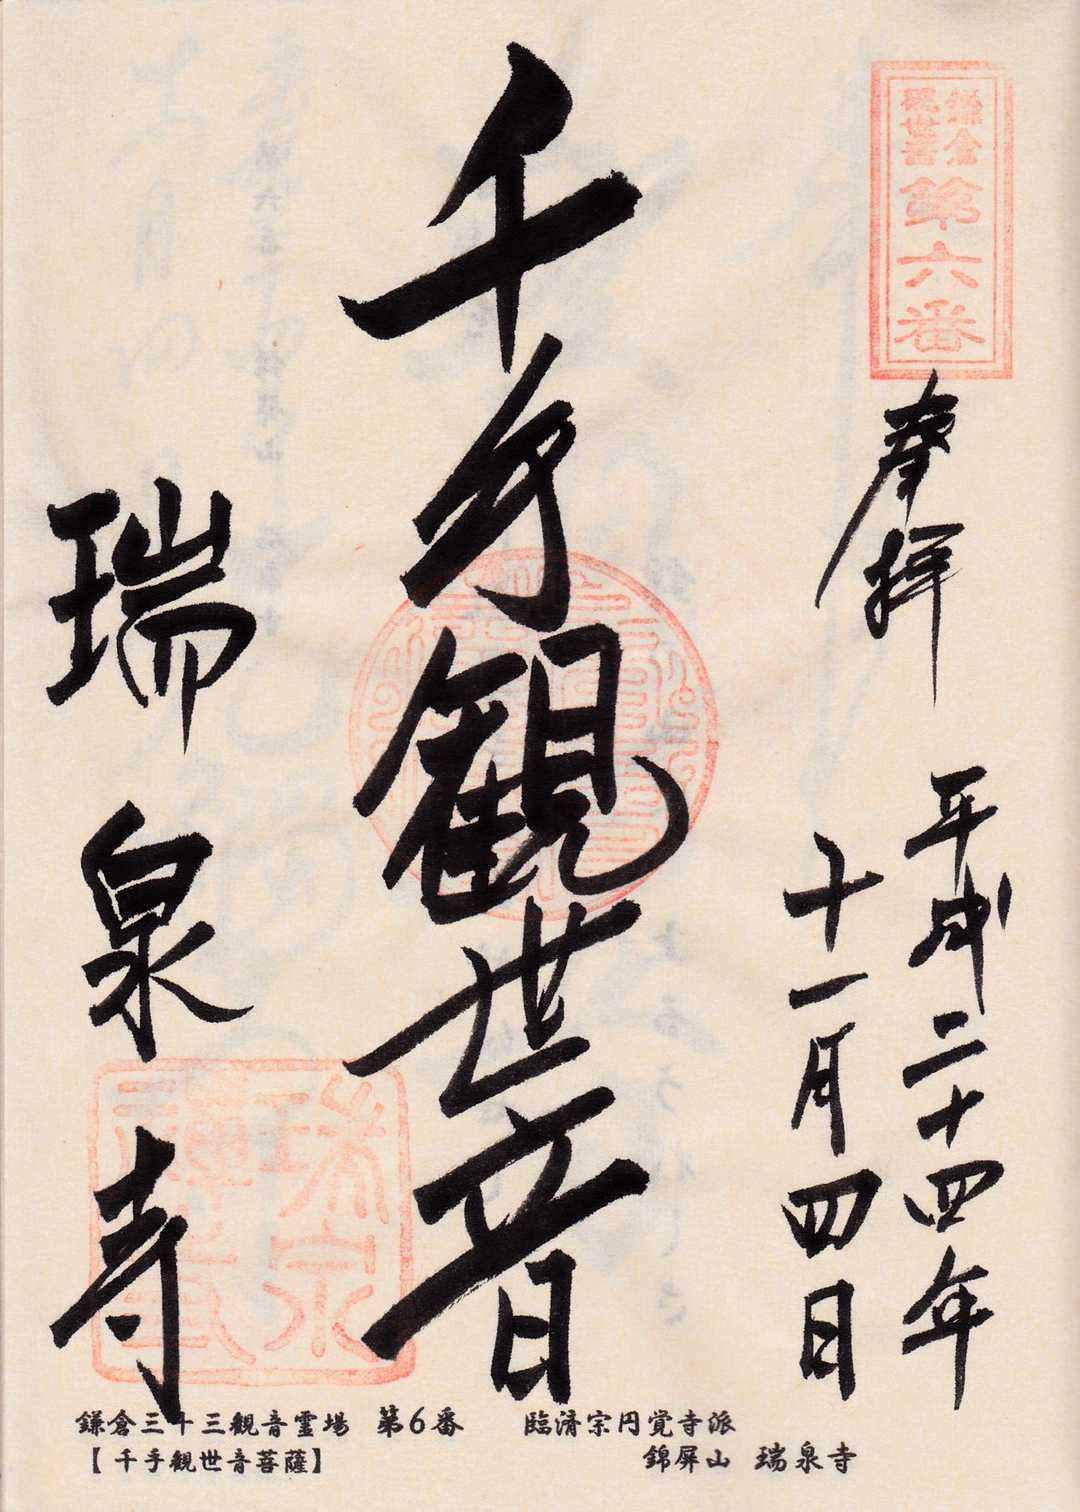 鎌倉
観世音
第六番
奉拝
平成二十四年
十一月四日
千手観世音
瑞泉寺
鎌倉三十三観音霊場 第6番
【千手観世音菩薩】
臨済宗円覚寺派
錦屏山 瑞泉寺